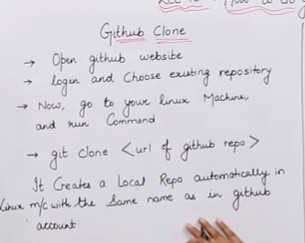 Github Clone
→ Open github website
→ login and Choose existing repository
→ Now, go to your linux Machine,
and run Command
→ git clone <url of github repo>
It Creates a Local Repo automatically in
Linux m/c with the Same name as in github
account